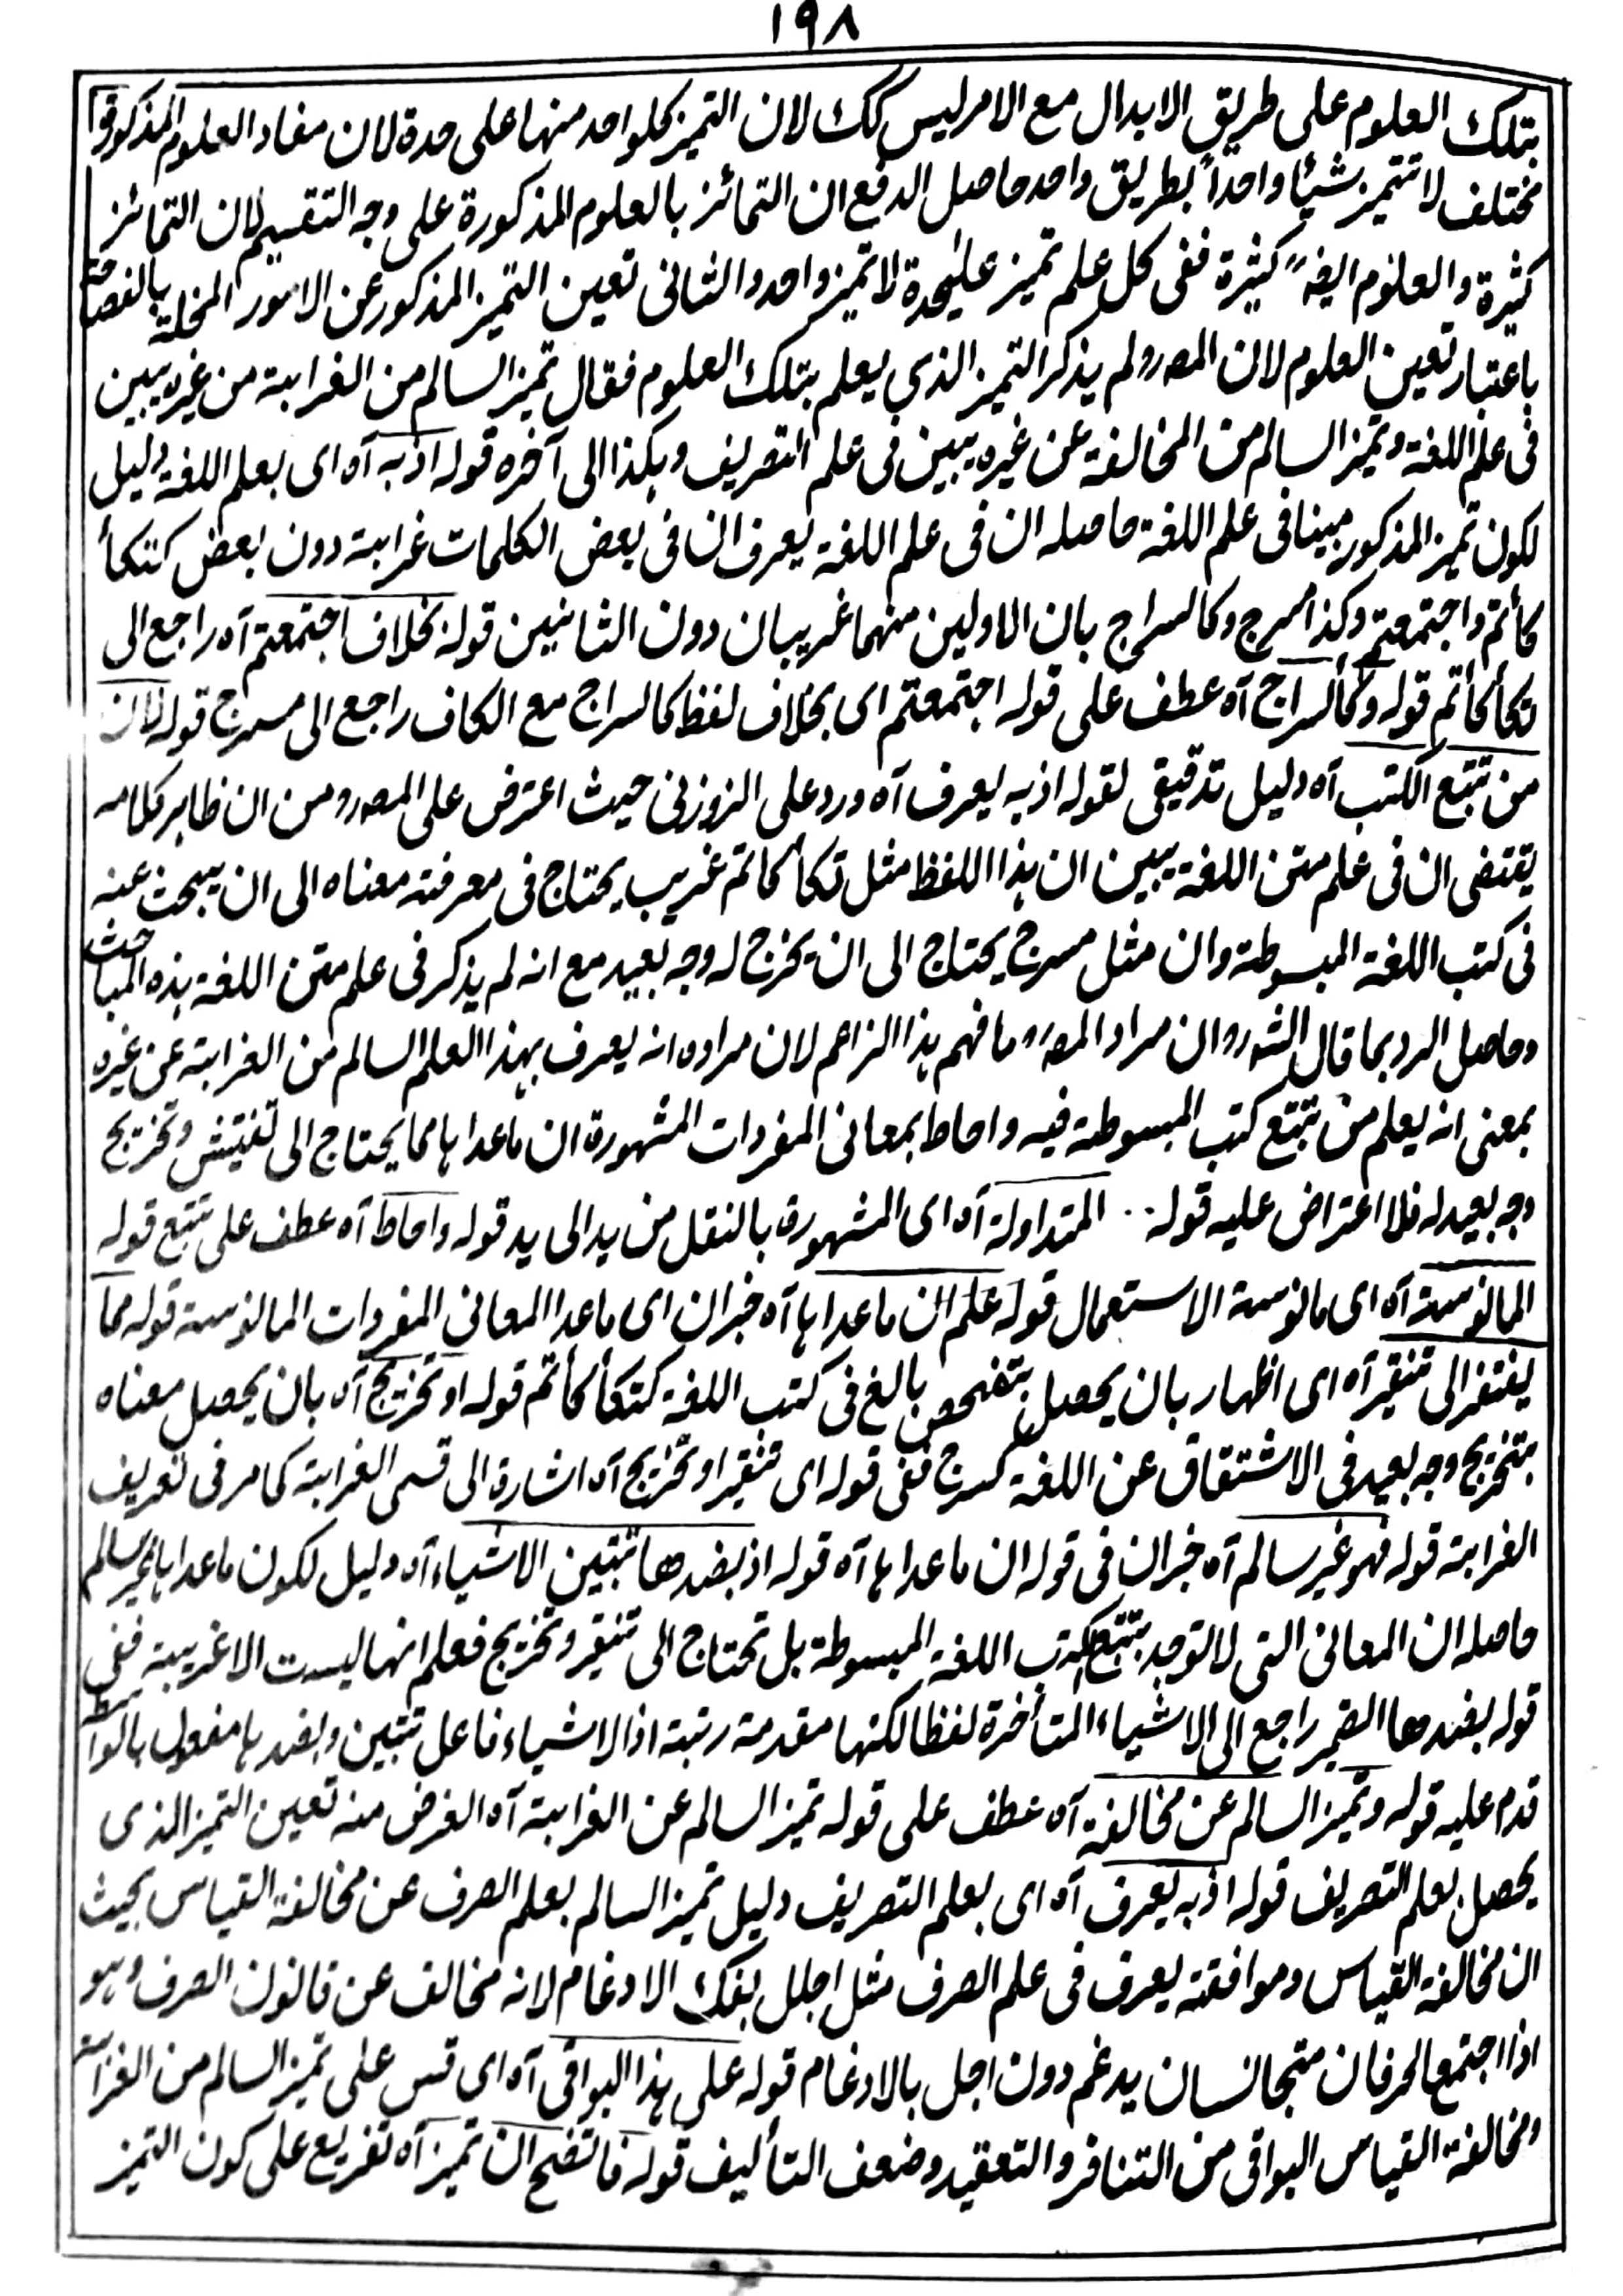 ١٩٨
بتلك العلوم على طريق الابدال مع الامر ليس كك لان التميز بكلواحد منها على حدة لان مفاد العلوم المذكورة
مختلف لا تتميز شيئا واحداً بطريق واحد حاصل الدفع ان التمائز بالعلوم المذكورة على وجه التقسيم لان التمائز
كثيرة والعلوم ايضہ كثيرة ففى كل علم تميز عليحدة لا تميز واحد والثانى تعين التميز المذكور عن الامور المخلة بالفصاحة
باعتبار تعين العلوم لان المصرو لم يذكر التميز الذى يعلم بتلك العلوم فقال تميز السالم من الغرابة من غيره يبين
فى علم اللغة وتميز السالم من المخالفة عن غيره يبين فى علم التصريف وهكذا الى آخره قوله اذ به آه اى بعلم اللغة دليل
لكون تميز المذكور مبينا فى علم اللغة حاصله ان فى علم اللغة يعرف ان فى بعض الكلمات غرابة دون بعض كتكأ
كأتم واجتمعتم وكذا مسرج وكالسراج بان الاولين منهما غريبان دون الثانيين قوله بخلاف اجتمعتم آه راجع الى
تكأكأتم قوله وكالسراج آه عطف على قوله اجتمعتم اى بخلاف لفظ كالسراج مع الكاف راجع الى مسرج قوله لان
من تتبع الكتب آه دليل تدقيقى لقوله اذ به يعرف آه ورد على الزوزنى حيث اعترض على المصرو من ان ظاهر كلامه
يقتضى ان فى علم متن اللغة يبين ان هذا اللفظ مثل تكأكأتم غريب يحتاج فى معرفته معناه الى ان يبحث عنه
فى كتب اللغة المبسوطة وان مثل مسرج يحتاج الى ان يخرج له وجه بعيد مع انه لم يذكر فى علم متن اللغة هذه المباحث
وحاصل الرد بما قال الشہرو ان مراد المصہ ما فهم هذا الزاعم لان مراده انه يعرف بهذا العلم السالم من الغرابة عن غيره
بمعنى انه يعلم من تتبع كتب المبسوطة فيه واحاط بمعانى المفردات المشهورة ان ماعداها مما يحتاج الى تفتيش وتخريج
وجه بعيد له فلا اعتراض عليه قوله .. المتداولة آه اى المشهورة بالنقل من يد الى يد قوله واحاط آه عطف على تتبع قوله
المانوسة آه اى مانوسة الاستعمال قوله علم ان ماعداها آه خبران اى ماعدا المعانى المفردات المانوسة قوله مما
يفتقر الى تنقير آه اى اظهار بان يحصل بتفحص بالغ فى كتب اللغة كتكأكأتم قوله او تخريج آه بان يحصل معناه
بتخريج وجه بعيد فى الاشتقاق عن اللغة كمسرج ففى قوله اى تنقير او تخريج آه اشارة الى قسمى الغرابة كما مر فى تعريف
الغرابة قوله فهو غير سالم آه خبران فى قوله ان ماعداها آه قوله اذ بضدها تتبين الاشياء آه دليل لكون ماعداها غير سالم
حاصله ان المعانى التى لا توجد بتتبع كتب اللغة المبسوطة بل تحتاج الى تنقير وتخريج فعلم انها ليست الا غريبة ففى
قوله بضدها الضمير راجع الى الاشياء المتأخرة لفظا لكنها مقدمة رتبة اذ الاشياء فاعل تتبين وبضدها مفعول بالواسطة
قدم عليه قوله وتميز السالم عن مخالفة آه عطف على قوله تميز السالم عن الغرابة آه الغرض منه تعين التميز الذى
يحصل بعلم التصريف قوله اذ به يعرف آه اى بعلم التصريف دليل تميز السالم بعلم الصرف عن مخالفة القياس بحيث
ان مخالفة القياس وموافقته يعرف فى علم الصرف مثل اجلل بفك الادغام لانه مخالف عن قانون الصرف وهو
اذا اجتمع الحرفان متجانسان يدغم دون اجل بالادغام قوله على هذا البواقى آه اى قس على تميز السالم من الغرابة
ومخالفة القياس البواقى من التنافر والتعقيد وضعف التأليف قوله فاتضح ان تميز آه تفريع على كون التميز